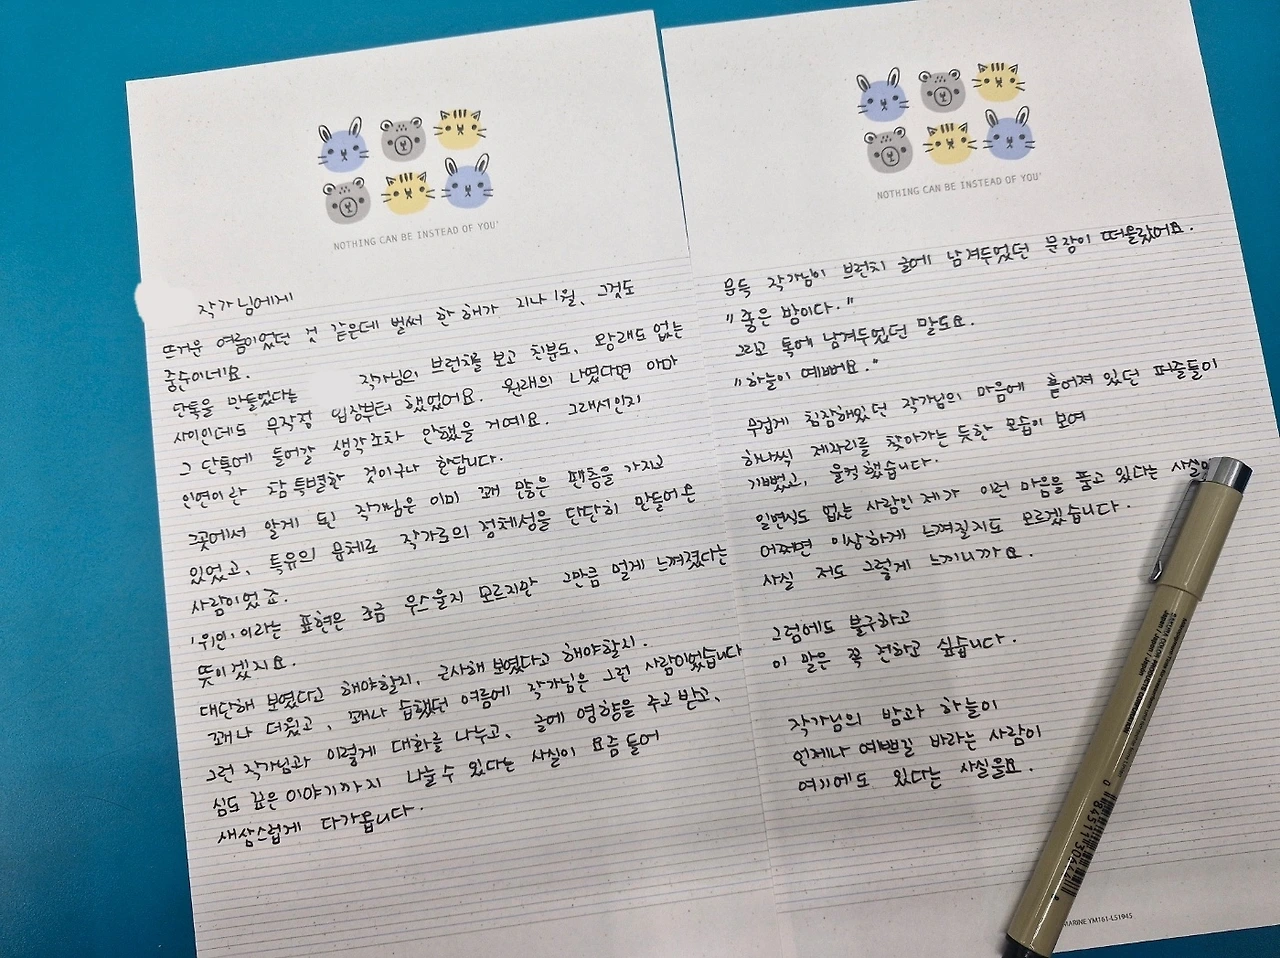 NOTHING CAN BE INSTEAD OF YOU'
작가님에게
뜨거운 여름이었던 것 같은데 벌써 한 해가 지나 1월, 그것도
중순이네요.
단톡을 만들었다는 작가님의 브런치를 보고 친분도, 왕래도 없는
사이인데도 무작정 입장부터 했었어요. 원래의 나였다면 아마
그 단톡에 들어갈 생각조차 안했을 거예요. 그래서인지
인연이란 참 특별한 것이구나 한답니다.
그곳에서 알게 된 작가님은 이미 꽤 많은 팬층을 가지고
있었고, 특유의 문체로 작가로의 정체성을 단단히 만들어 온
사람이었죠.
'위인'이라는 표현은 조금 우스울지 모르지만 그만큼 멀게 느껴졌다는
뜻이겠지요.
대단해 보였다고 해야할지, 근사해 보였다고 해야할지.
꽤나 더웠고, 꽤나 습했던 여름에 작가님은 그런 사람이었습니다
그런 작가님과 이렇게 대화를 나누고, 글에 영향을 주고 받고,
심도 깊은 이야기까지 나눌 수 있다는 사실이 요즘 들어
새삼스럽게 다가옵니다.
NOTHING CAN BE INSTEAD OF YOU'
문득 작가님이 브런치 글에 남겨두었던 문장이 떠올랐어요.
"좋은 밤이다."
그리고 톡에 남겨두었던 말도요.
"하늘이 예뻐요."
무겁게 침잠해있던 작가님의 마음에 흩어져 있던 퍼즐들이
하나씩 제자리를 찾아가는 듯한 모습이 보여
기뻤고, 울컥했습니다.
일면식도 없는 사람인 제가 이런 마음을 품고 있다는 사실이
어쩌면 이상하게 느껴질지도 모르겠습니다.
사실 저도 그렇게 느끼니까요.
그럼에도 불구하고
이 말은 꼭 전하고 싶습니다.
작가님의 밤과 하늘이
언제나 예쁘길 바라는 사람이
여기에도 있다는 사실을요.
MARINE YM161-LS1945